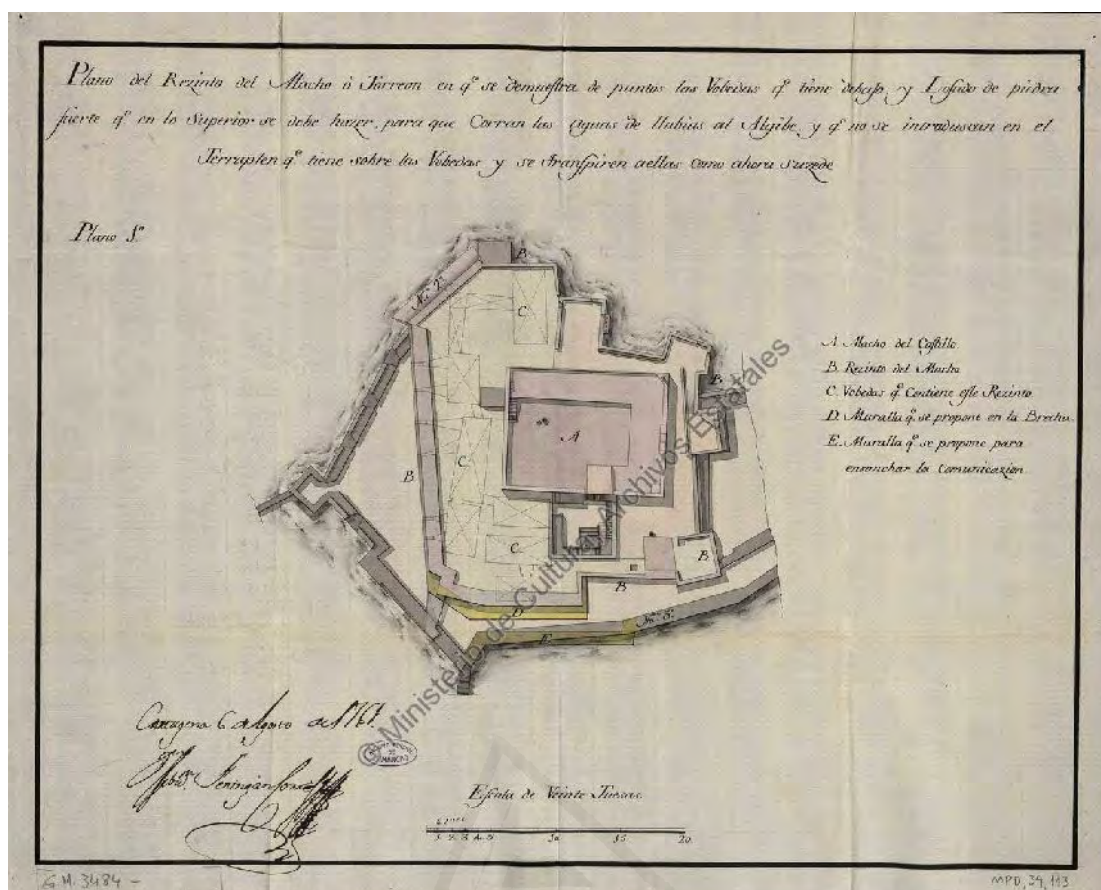 Plano del Rezinto del Macho ò Torreon en q.ᵉ se demuestra de puntos las Vobedas q.ᵉ tiene debaxo, y Losado de piedra
fuerte q.ᵉ en lo Superior se debe hazer, para que Corran las Aguas de llubias al Algibe, y q.ᵉ no se introduscan en el
Terraplen q.ᵉ tiene sobre las Vobedas y se transpiren aellas como ahora suzede
Plano 5.º
A. Macho del Castillo.
B. Rezinto del Macho
C. Vobedas q.ᵉ Contiene este Rezinto.
D. Muralla q.ᵉ se propone en la Brecha.
E. Muralla q.ᵉ se propone para
ensanchar la Comunicazion.
B
N.º 2.º
C.
B
A
B.
C.
C.
B
B
D
N.º 3.º
E.
© Ministerio de Cultura. Archivos Estatales
Cartagena 6 de Agosto de 1761.
Escala de Veinte Tuesas
1. 2. 3. 4. 5 10 15 20
G.M. 3484 -
MPD, 34, 113